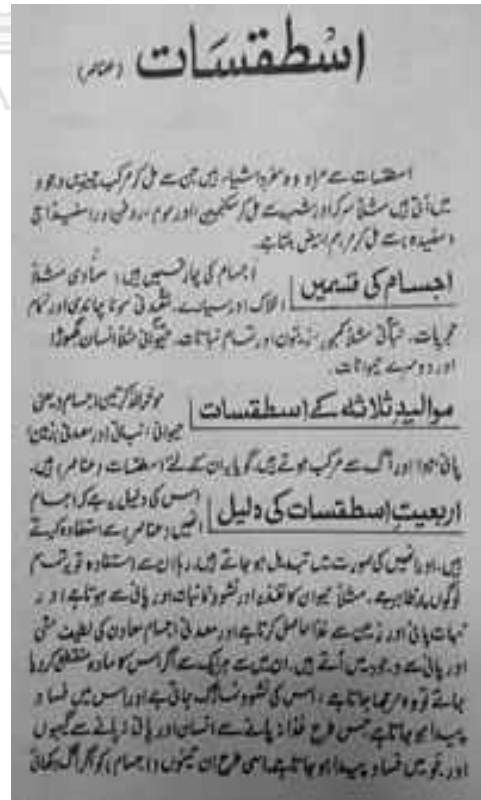 اسطقسات (عناصر)
اسطقسات سے مراد وہ مفرد اشیاء ہیں جن سے مل کر مرکب چیزیں وجود
میں آتی ہیں مثلاً سرکہ اور شہد سے مل کر سکنجبین اور موم، روغن اور اسفیداج
(سفیدہ) سے مل کر مرہم ابیض بنتا ہے۔
اجسام کی قسمیں
اجسام کی چار قسمیں ہیں: سماوی مثلاً
افلاک اور سیارے۔ معدنی سونا چاندی اور تمام
حجریات۔ نباتی مثلاً کھجور، زیتون اور تمام نباتات۔ حیوانی مثلاً انسان گھوڑا
اور دوسرے حیوانات۔
موالیدِ ثلاثہ کے اسطقسات
موخر الذکر تین اجسام یعنی
حیوانی نباتی اور معدنی زمین
پانی ہوا اور آگ سے مرکب ہوتے ہیں۔ گویا یہ ان کے لئے اسطقسات (عناصر) ہیں۔
اربعیتِ اسطقسات کی دلیل
اس کی دلیل یہ ہے کہ اجسام
انھیں (عناصر) سے استفادہ کرتے
ہیں۔ اور انھیں کی صورت میں تبدیل ہو جاتے ہیں۔ رہا ان سے استفادہ تو یہ تمام
لوگوں پر ظاہر ہے۔ مثلاً حیوان کا تغذیہ اور نشوونما نباتات اور پانی سے ہوتا ہے اور
نبات پانی اور زمین سے غذا حاصل کرتا ہے اور معدنی اجسام معادن کی لطیف مٹی
اور پانی سے وجود میں آتے ہیں۔ ان میں سے ہر ایک سے اگر اس کا مادہ منقطع کر دیا
جائے تو وہ مرجھا جاتا ہے، اس کی نشوونما رک جاتی ہے اور اس میں فساد
پیدا ہو جاتا ہے جس طرح غذا نہ پانے سے انسان اور پانی نہ پانے سے گیہوں
اور جو میں فساد پیدا ہو جاتا ہے۔ اسی طرح ان تینوں (اجسام) کو اگر آگ دکھائی